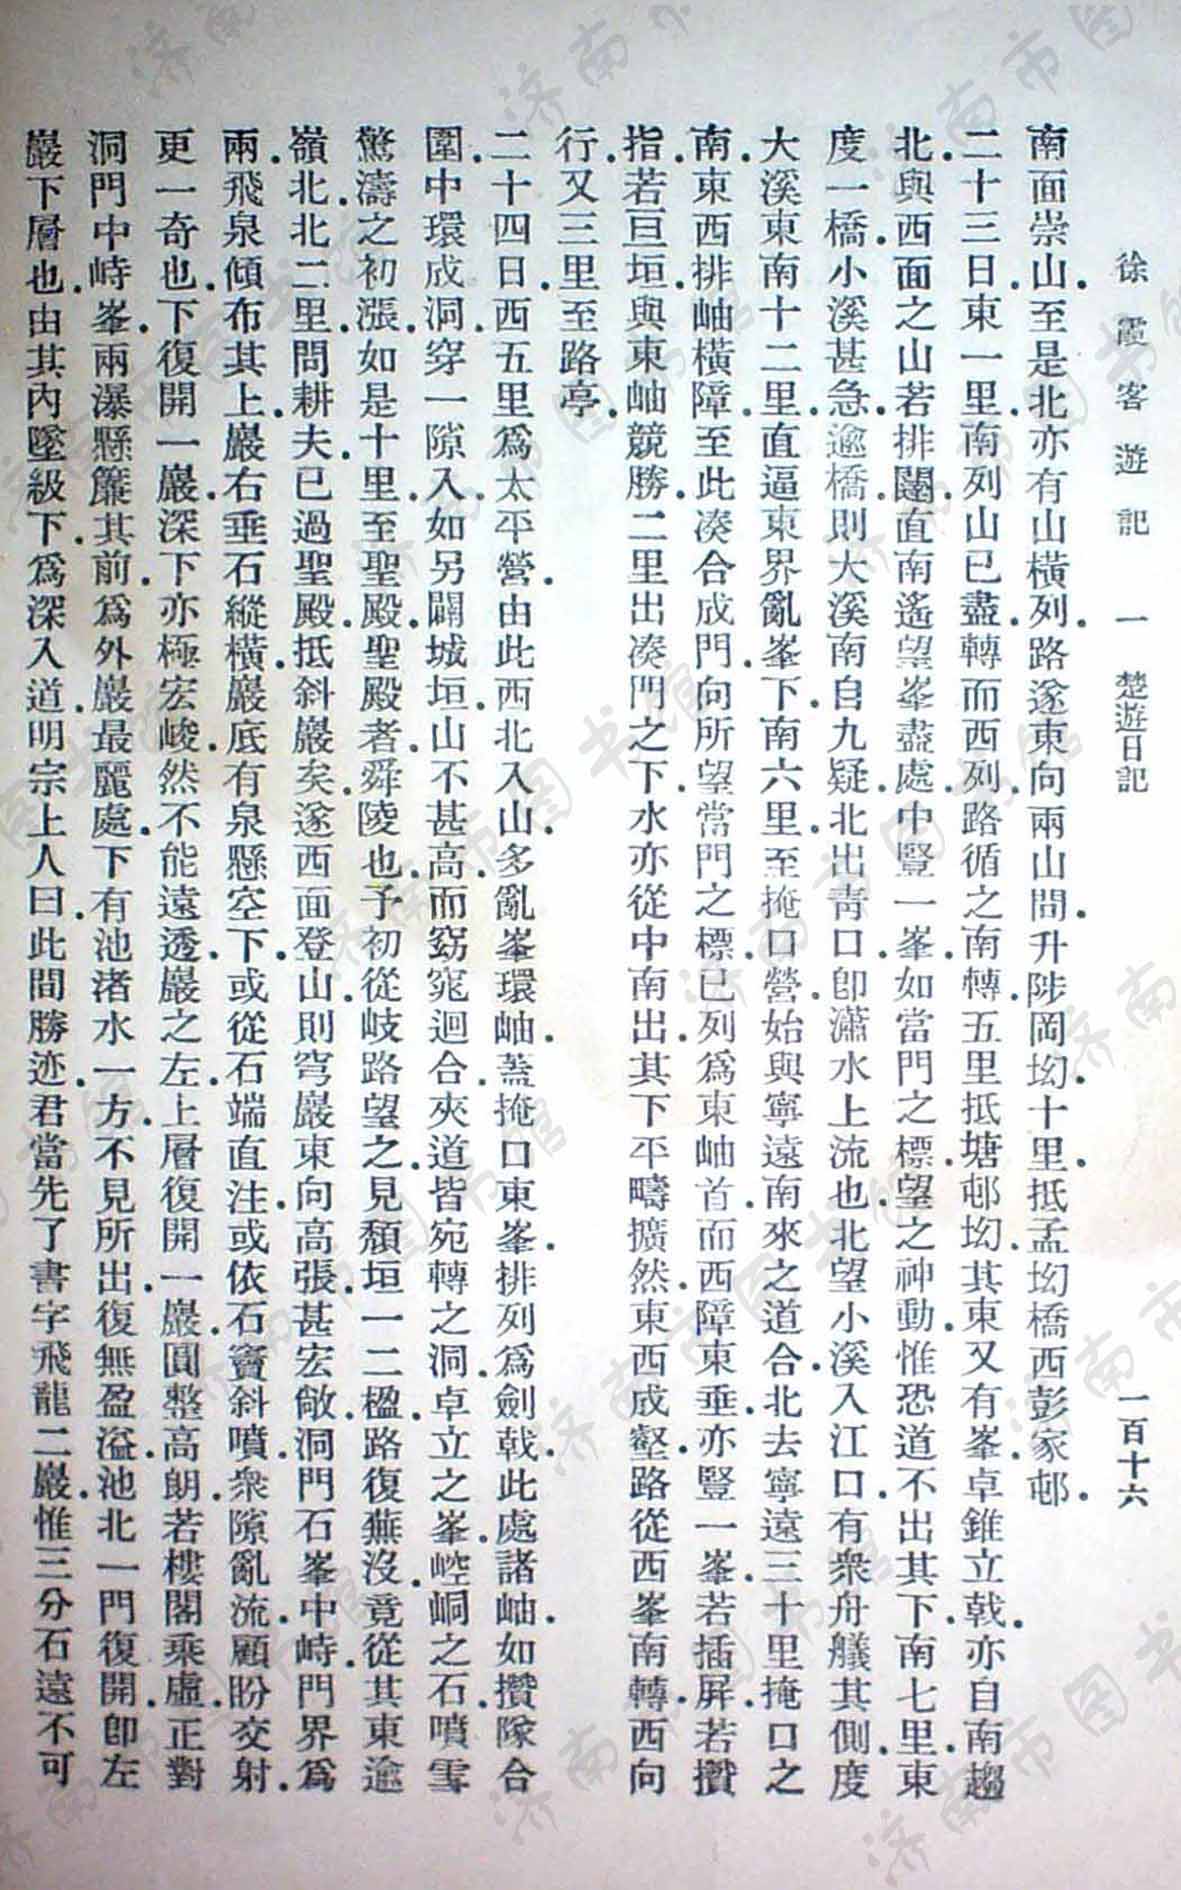 徐霞客遊記 一 楚遊日記 一百十六
南面崇山.至是北亦有山橫列.路遂東向兩山間.升陟岡坳.十里.抵孟坳橋西彭家邨.
二十三日.東一里.南列山已盡.轉而西列.路循之南轉.五里抵塘邨坳.其東又有峯卓錐立戟.亦自南趨
北.與西面之山若排闥.直南遙望峯盡處.中豎一峯.如當門之標.望之神動.惟恐道不出其下.南七里.東
度一橋.小溪甚急.逾橋.則大溪南自九疑.北出靑口.卽瀟水上流也.北望小溪入江口.有衆舟艤其側.度
大溪東南十二里.直逼東界亂峯下.南六里.至掩口營.始與寧遠南來之道合.北去寧遠三十里.掩口之
南.東西排岫橫障.至此湊合成門.向所望當門之標.已列爲東岫首.而西障東垂.亦豎一峯.若插屏.若攢
指.若亘垣.與東岫競勝.二里出湊門之下.水亦從中南出.其下平疇擴然.東西成壑.路從西峯南轉.西向
行.又三里.至路亭.
二十四日.西五里.爲太平營.由此西北入山.多亂峯環岫.蓋掩口東峯.排列爲劍戟.此處諸岫.如攢隊合
圍.中環成洞.穿一隙入.如另闢城垣.山不甚高.而窈窕迴合.夾道皆宛轉之洞.卓立之峯.崆峒之石.噴雪
驚濤之初漲.如是十里.至聖殿.聖殿者.舜陵也.予初從岐路望之.見頽垣一二楹.路復蕪沒.竟從其東逾
嶺北.北二里.問耕夫.已過聖殿.抵斜巖矣.遂西面登山.則穹巖東向高張.甚宏敞.洞門石峯中峙.門界爲
兩.飛泉傾布其上.巖右垂石縱橫.巖底有泉懸空下.或從石端直注.或依石竇斜噴.衆隙亂流.顧盼交射.
更一奇也.下復開一巖.深下亦極宏峻.然不能遠透.巖之左.上層復開一巖.圓整高朗.若樓閣乘虛.正對
洞門中峙峯.兩瀑懸簾其前.爲外巖最麗處.下有池.渚水一方.不見所出.復無盈溢.池北一門復開.卽左
巖下層也.由其內墜級下.爲深入道.明宗上人曰.此間勝迹.君當先了書字飛龍二巖.惟三分石遠不可